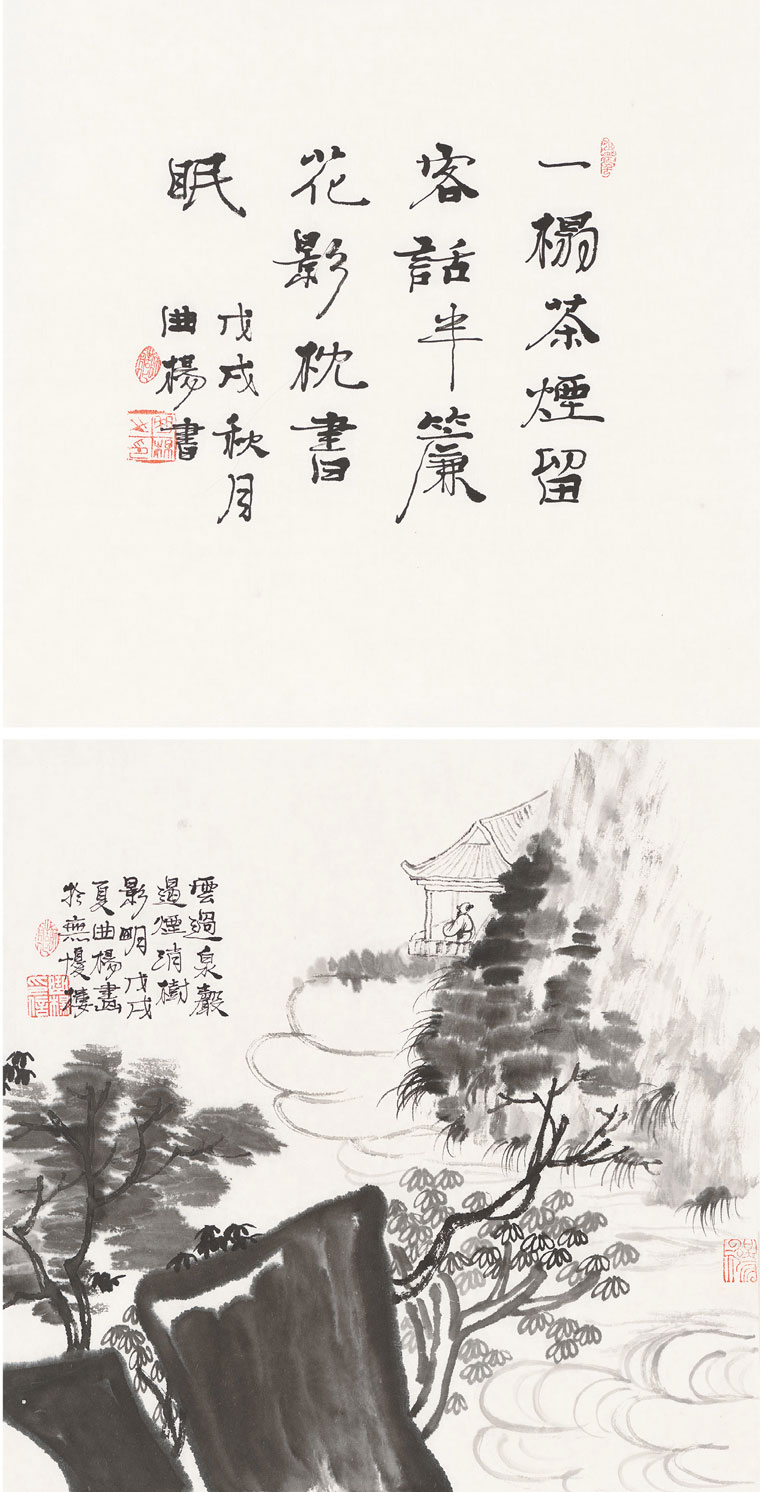 一榻茶煙留
客話半簾
花影枕書
眠
戊戌秋月
曲楊書
雲過泉聲
過煙消樹
影明戊戌
夏曲楊畫
於無憂樓